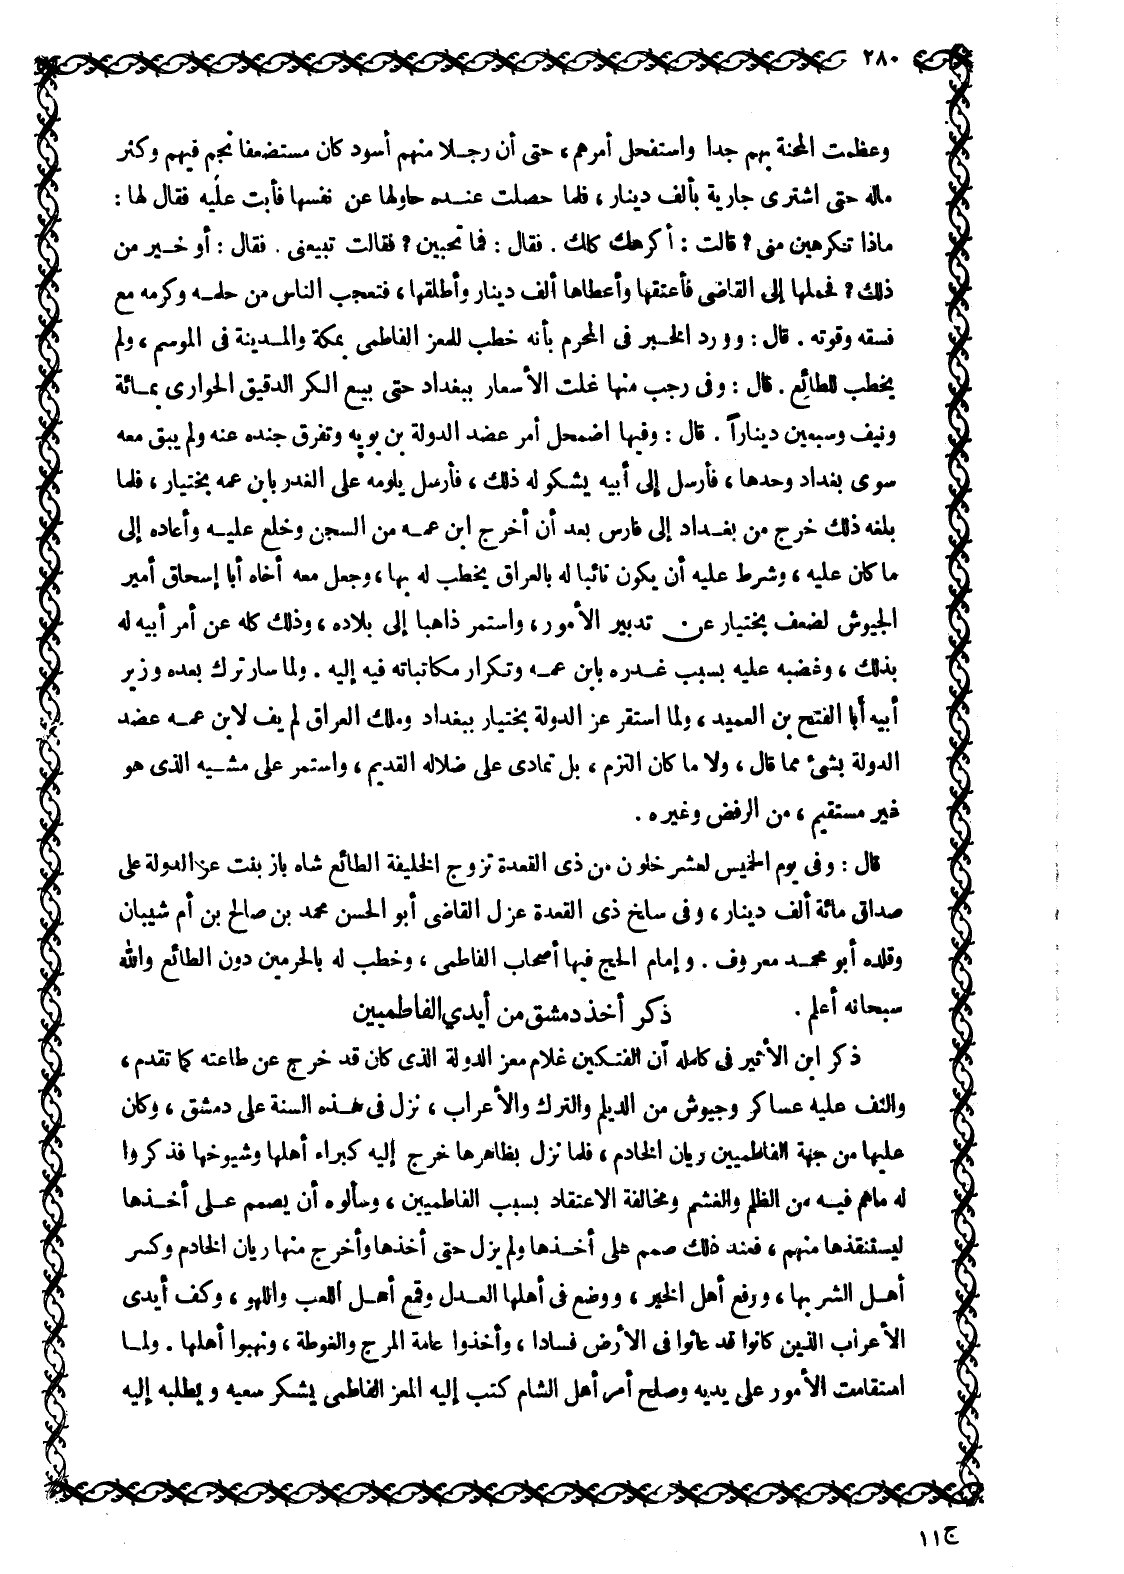 ٢٨٠
وعظمت المحنة بهم جدا واستفحل أمرهم ، حتى أن رجلا منهم أسود كان مستضعفا نجم فيهم وكثر
ماله حتى اشترى جارية بألف دينار ، فلما حصلت عنده حاولها عن نفسها فأبت عليه فقال لها :
ماذا تكرهين منى ؟ قالت : أكرهك كلك . فقال : فما تحبين ؟ فقالت تبيعنى . فقال : أو خير من
ذلك ؟ فحملها إلى القاضى فأعتقها وأعطاها ألف دينار وأطلقها ، فتعجب الناس من حلمه وكرمه مع
فسقه وقوته . قال : وورد الخبر فى المحرم بأنه خطب للمعز الفاطمى بمكة والمدينة فى الموسم ، ولم
يخطب للطائع . قال : وفى رجب منها غلت الأسعار ببغداد حتى بيع الكر الدقيق الحوارى بمائة
ونيف وسبعين ديناراً . قال : وفيها اضمحل أمر عضد الدولة بن بويه وتفرق جنده عنه ولم يبق معه
سوى بغداد وحدها ، فأرسل إلى أبيه يشكو له ذلك ، فأرسل يلومه على الغدر بابن عمه بختيار ، فلما
بلغه ذلك خرج من بغداد إلى فارس بعد أن أخرج ابن عمه من السجن وخلع عليه وأعاده إلى
ما كان عليه ، وشرط عليه أن يكون نائبا له بالعراق يخطب له بها ، وجعل معه أخاه أبا إسحاق أمير
الجيوش لضعف بختيار عن تدبير الأمور ، واستمر ذاهبا إلى بلاده ، وذلك كله عن أمر أبيه له
بذلك ، وغضبه عليه بسبب غدره بابن عمه وتكرار مكاتباته فيه إليه . ولما سار ترك بعده وزير
أبيه أبا الفتح بن العميد ، ولما استقر عز الدولة بختيار ببغداد وملك العراق لم يف لابن عمه عضد
الدولة بشئ مما قال ، ولا ما كان التزم ، بل تمادى على ضلاله القديم ، واستمر على مشيه الذى هو
غير مستقيم ، من الرفض وغيره .
قال : وفى يوم الخميس لعشر خلون من ذى القعدة تزوج الخليفة الطائع شاه باز بنت عز الدولة على
صداق مائة ألف دينار ، وفى سلخ ذى القعدة عزل القاضى أبو الحسن محمد بن صالح بن أم شيبان
وقلده أبو محمد معروف . وإمام الحج فيها أصحاب الفاطمى ، وخطب له بالحرمين دون الطائع والله
سبحانه أعلم .
ذكر أخذ دمشق من أيدي الفاطميين
ذكر ابن الأثير فى كامله أن الفتكين غلام معز الدولة الذى كان قد خرج عن طاعته كما تقدم ،
والتف عليه عساكر وجيوش من الديلم والترك والأعراب ، نزل فى هذه السنة على دمشق ، وكان
عليها من جهة الفاطميين ريان الخادم ، فلما نزل بظاهرها خرج إليه كبراء أهلها وشيوخها فذكروا
له ماهم فيه من الظلم والغشم ومخالفة الاعتقاد بسبب الفاطميين ، وسألوه أن يصمم على أخذها
ليستنقذها منهم ، فعند ذلك صمم على أخذها ولم يزل حتى أخذها وأخرج منها ريان الخادم وكسر
أهل الشر بها ، ورفع أهل الخير ، ووضع فى أهلها العدل وقمع أهل اللعب واللهو ، وكف أيدى
الأعراب الذين كانوا قد عاثوا فى الأرض فسادا ، وأخذوا عامة المرج والغوطة ، ونهبوا أهلها . ولما
استقامت الأمور على يديه وصلح أمر أهل الشام كتب إليه المعز الفاطمى يشكر سعيه ويطلبه إليه
ج ١١